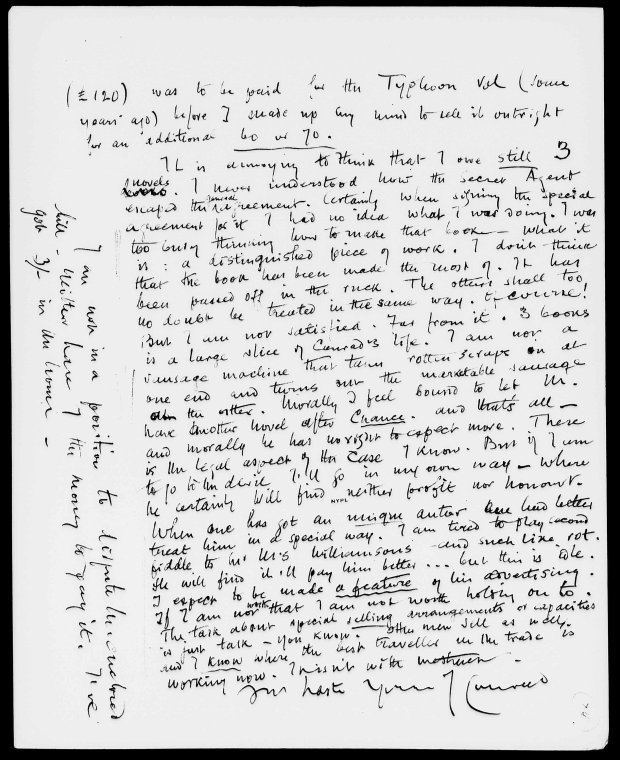 (£120) was to be paid for the Typhoon Vol (some
years ago) before I made up my mind to sell it outright
for an additional 60 or 70.
It is annoying to think that I owe still 3
novels. I never understood how the Secret Agent
escaped the general agreement. Certainly when signing the special
agreement for it I had no idea what I was doing. I was
too busy thinking how to make that book — what it
is: a distinguished piece of work. I don't think
that the book has been made the most of. It has
been passed off in the ruck. The others shall too
no doubt be treated in the same way. Of course!
But I am not satisfied. Far from it. 3 books
is a large slice of Conrad's life. I am not a
sausage machine that takes rotten scraps in at
one end and turns out the marketable sausage
at the other. Morally I feel bound to let M.
have another novel after Chance. and that's all —
and morally he has no right to expect more. There
is the legal aspect of the case I know. But if I am
to go to the devil I'll go in my own way — where
he certainly will find neither profit nor honour.
When one has got an unique author one had better
treat him in a special way. I am tired to play second
fiddle to Mr M's Williamsons and such like rot.
He will find it'll pay him better... but this is idle.
I expect to be made a feature of his advertising.
If I am not worth that I am not worth holding on to.
The talk about special selling arrangements or capacities
is just talk — you know. Other men sell as well.
and I know where the best traveller in the trade is
working now. It isn't with
In haste Yours J Conrad
I am not in a position to dispute
bill — neither have I the money to pay it. I've
got 3/- in the house —